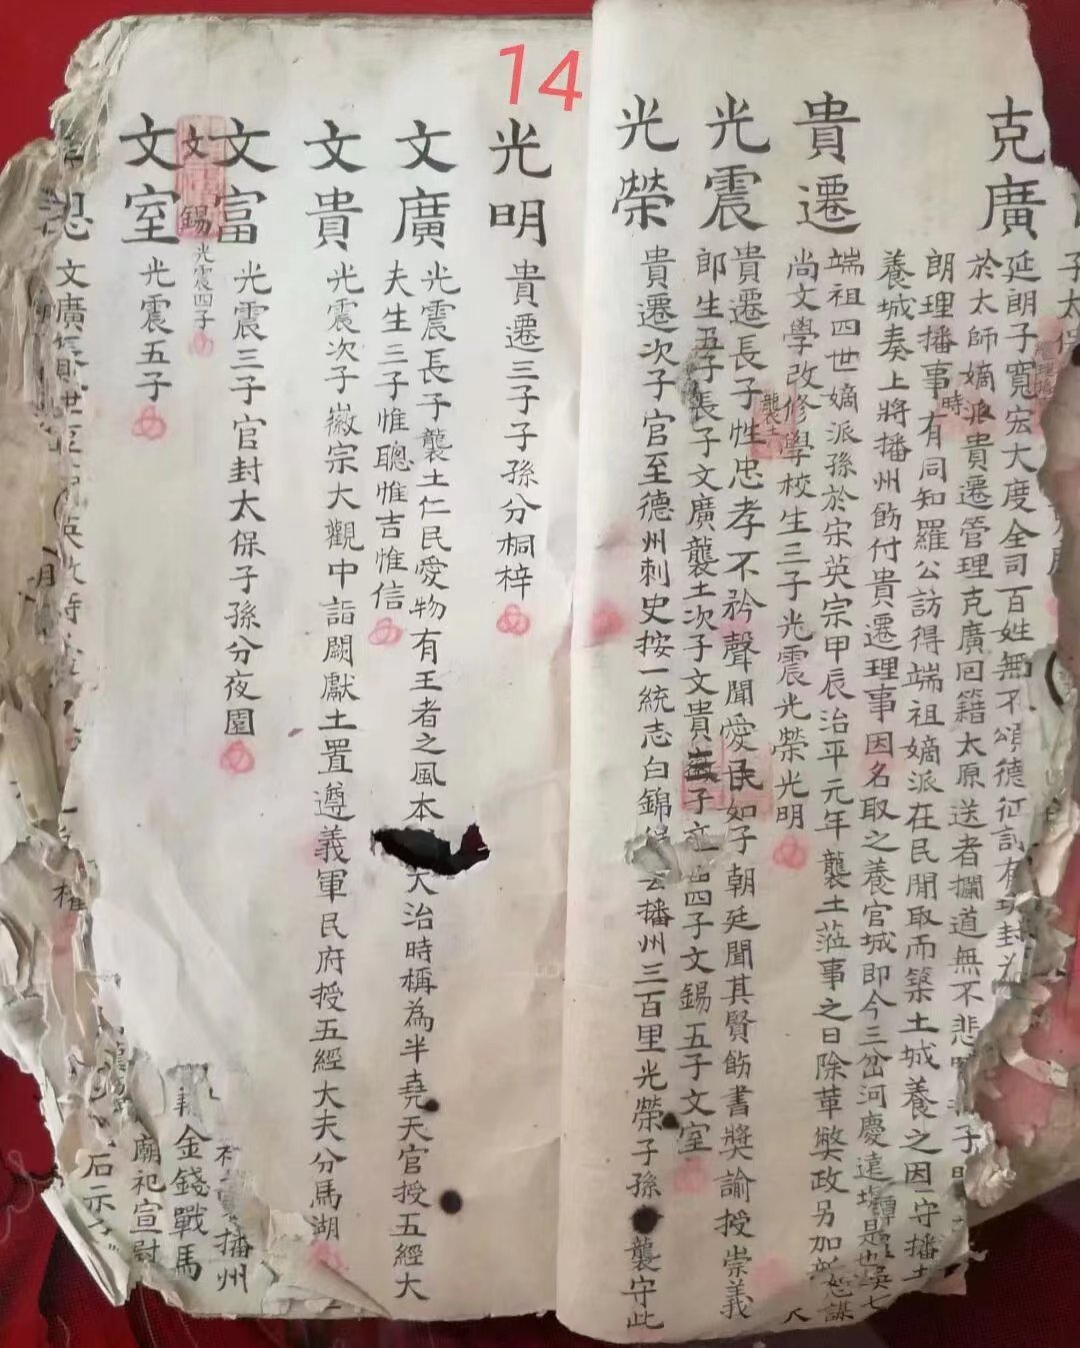 14
子太保
克廣
延朗子寬宏大度全司百姓無不頌德征討有功封
於太師嫡派貴遷管理克廣回籍太原送者攔道無不悲
朗理播事時有同知羅公訪得端祖嫡派在民間取而築土城養之因守播土
養城奏上將播州飭付貴遷理事因名取之養官城即今三岔河慶遠壩是也
貴遷
端祖四世嫡派孫於宋英宗甲辰治平元年襲土蒞事之日除革獘政另加
尚文學改修學校生三子光震光榮光明
光震
貴遷長子性忠孝不矜聲聞愛民如子朝廷聞其賢飭書獎諭授崇義
郎生五子長子文廣襲土次子文貴三子文富四子文錫五子文室
光榮
貴遷次子官至德州刺史按一統志白錦 播州三百里光榮子孫襲守此
光明
貴遷三子子孫分桐梓
文廣
光震長子襲土仁民愛物有王者之風本 大治時稱為半堯天官授五經大
夫生三子惟聰惟吉惟信
文貴
光震次子徽宗大觀中詣闕獻土置遵義軍民府授五經大夫分馬湖
文富
光震三子官封太保子孫分夜園
文錫
光震四子
文室
光震五子
文廣
播州
金錢戰馬
廟祀宣尉
石示